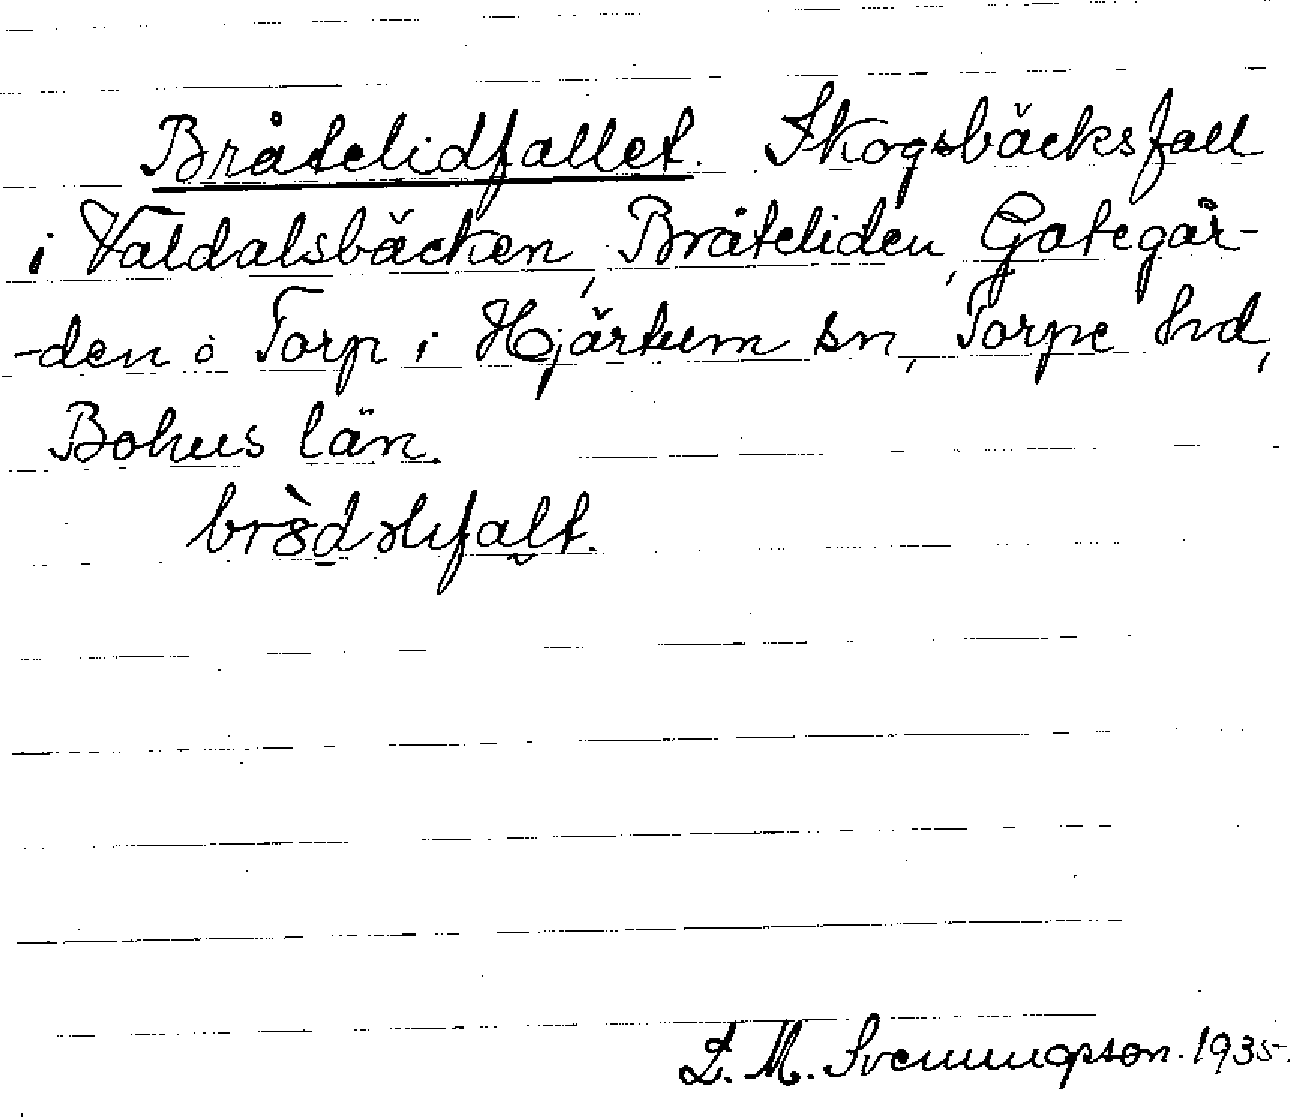 Bråtelidfallet. Skogsbäcksfall
i Valdalsbäcken, Bråteliden, Gategär-
-den å Torp i Hjärtum sn, Torpe hd,
Bohus län.
L. M. Svenungsson. 1935.